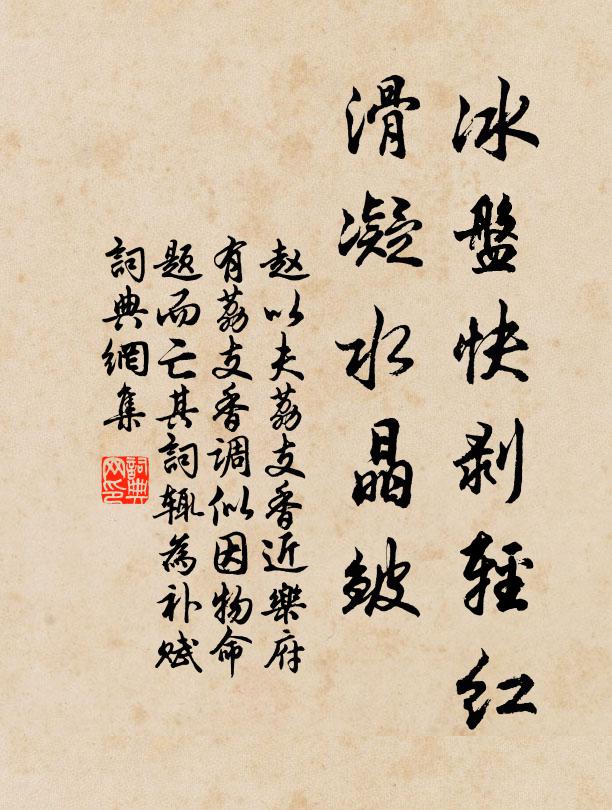 冰盤快剥輕紅
滑凝水晶皴
赵以夫荔支香近樂府
有荔支香调似因物命
题而亡其詞辄為补赋
詞典網集
詞典網印